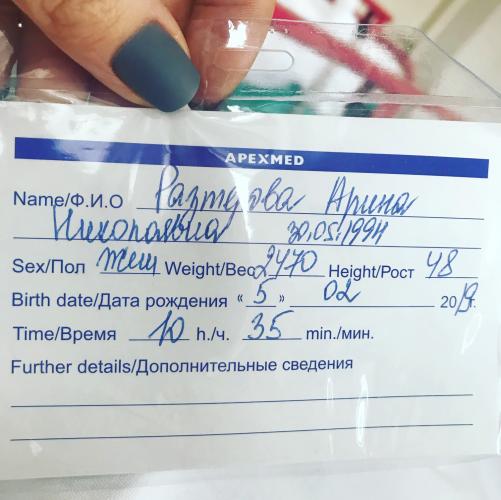 APEXMED
Name/Ф.И.О Разтдова Арина
Николаевна 30.05.1994
Sex/Пол жен Weight/Вес 2470 Height/Рост 48
Birth date/Дата рождения « 5 » 02 2019.
Time/Время 10 h./ч. 35 min./мин.
Further details/Дополнительные сведения